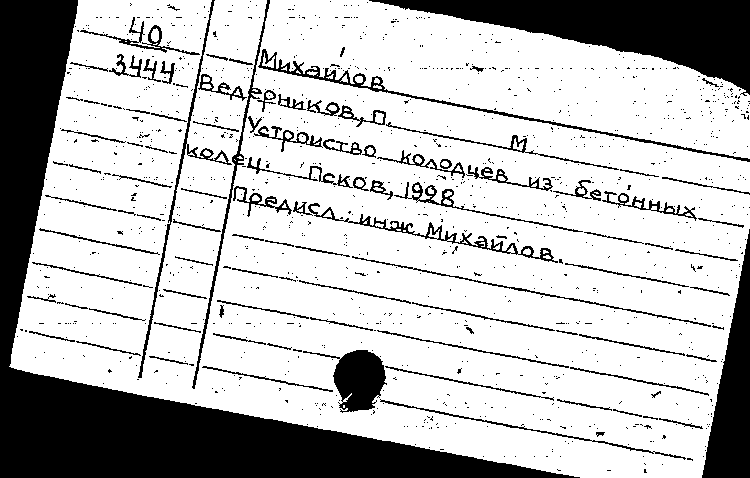 40
3444
Михайлов
Ведерников, П. М.
Устройство колодцев из бетонных
колец. Псков, 1928.
Предисл.: инж. Михайлов.